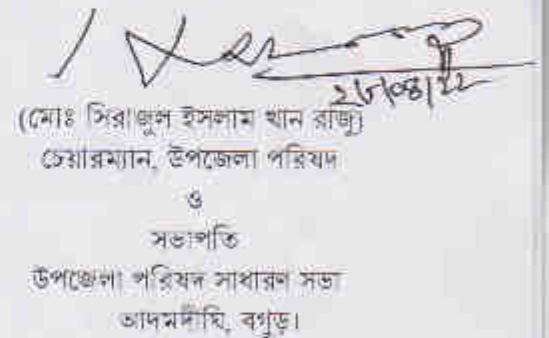 ২৮/০৪/২২
(মোঃ সিরাজুল ইসলাম খান রাজু)
চেয়ারম্যান, উপজেলা পরিষদ
ও
সভাপতি
উপজেলা পরিষদ সাধারণ সভা
আদমদীঘি, বগুড়া।